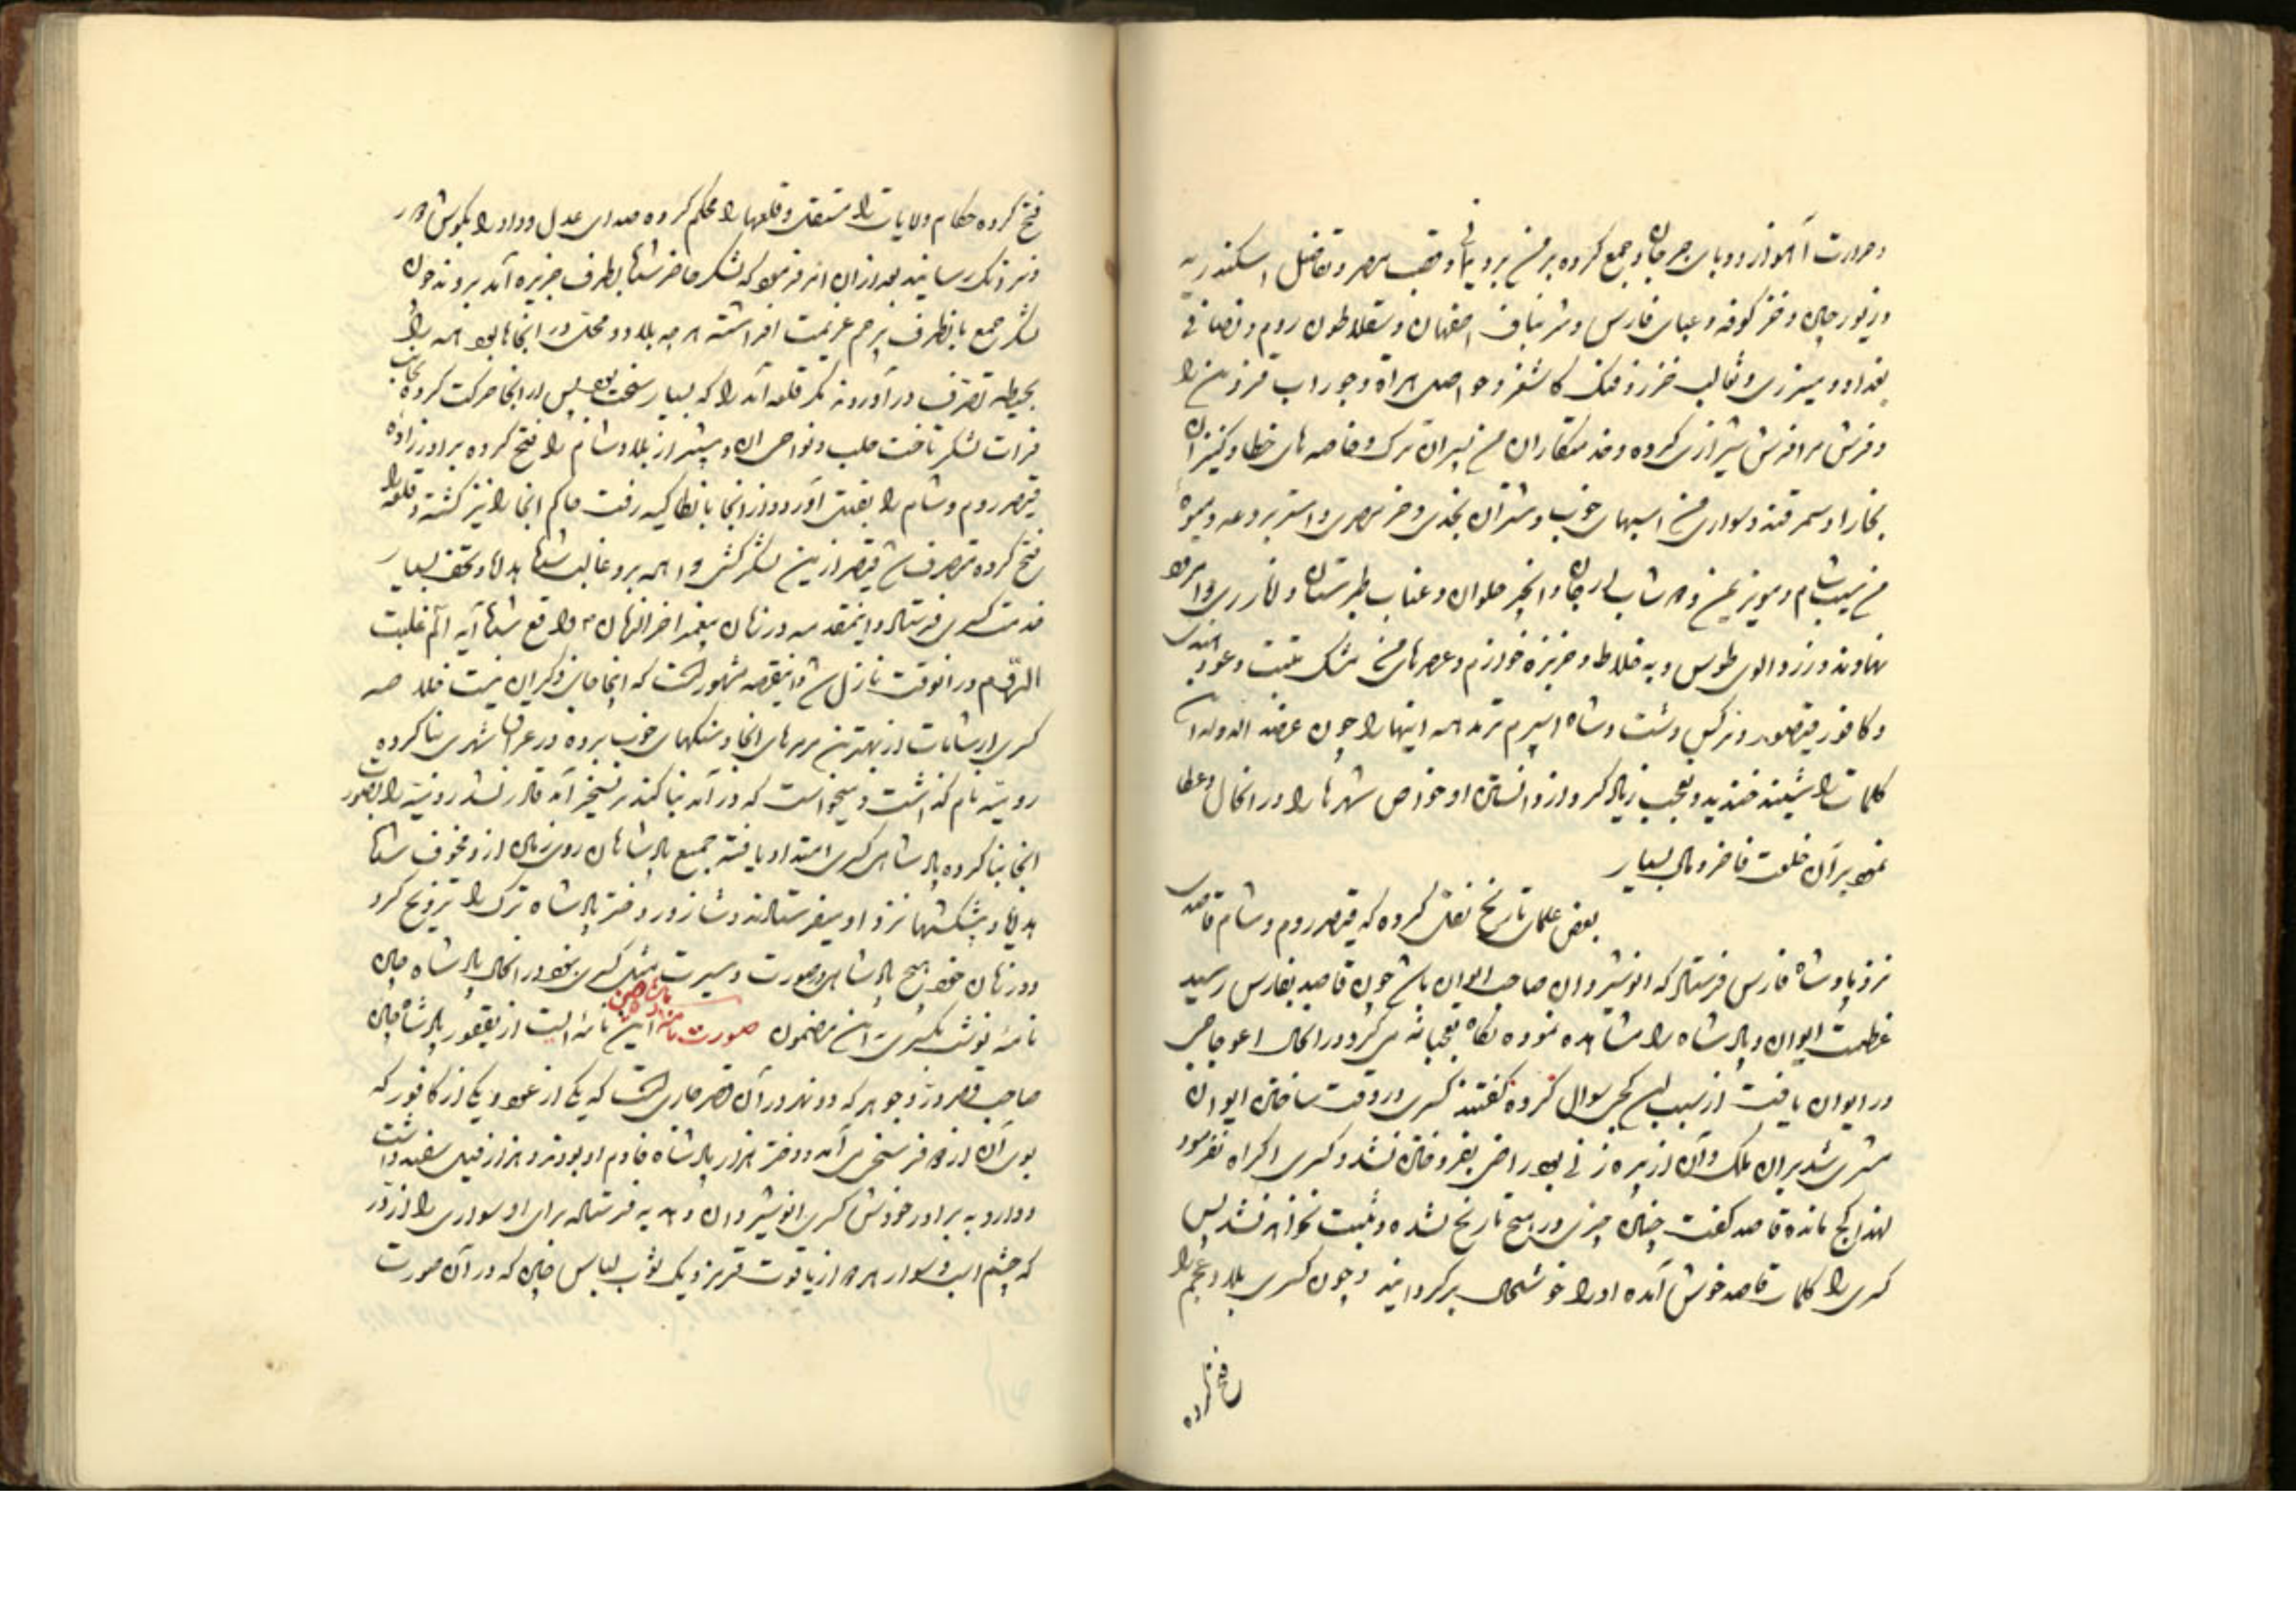 و حرارت آهواز و وبای جرجان جمع کرده بر من برد یمانی و قصب مصر و تفاضل اسکندریه
و زیور چین و خز کوفه و عبای فارس و شربناف اصفهان و سقلاطون روم و نصافی
بغداد و میزری و ثعالب خزر و فنک کاشغر و حواصل هراة و جوراب قزوین را
و فرش مرا فرش شیرازی کرده و خدمتکاران من پسران ترک و خاصه های خطا و کنیزان
بخارا و سمرقند و سواری من اسبهای خوب و شتران نجدی و خر مصری و استر بردعه و میوه
من سیب شام و مویز یمن و انجیر حلوان و عناب طبرستان و انار ری و امرود
نهاوند و زردالوی طوس و به خلاط و خربزه خوارزم و عطرهای من مشک تبت و عود هندی
و کافور قیصور و نرکس دشت و شاه اسپرم ترمد همه اینها را چون عضد الدوله این
کلمات را شنید خندید و تعجب زیاد کرد از دانستن او خواص شهرها را در انحال و عطا
نمود بر آن خلعت فاخر و مال بسیار
بعض علمای تاریخ نقل کرده که قیصر روم و شام قاصدی
نزد پادشاه فارس فرستاد که انوشیروان صاحب ایوان باشد چون قاصد بفارس رسید
عظمت ایوان و پادشاه را مشاهده نموده نکاه تعجبانه می کرد در انحال اعوجاجی
در ایوان یافت از سبب این کجی سوال کرده کفتند کسری در وقت ساختن ایوان
مشتری شد بر آن ملک و آن از پیره زنی بود راضی بفروختن نشد و کسری اکراه نفرمود
لهذا کج مانده قاصد کفت چنین چیزی در هیچ تاریخ نشده و ثبت نخواهد شد پس
کسری را کلمات قاصد خوش آمده او را خوشحال برکردانید و چون کسری بلاد عجم را
فتح کرده
فتح کرده حکام ولایات را مستقل و قلعها را محکم کرده صدای عدل و داد را بکوش دور
و نزدیک رسانید بعد از آن امر فرمود که لشکر حاضر شد بطرف جزیره آمد بروند چون
لشکر جمع بانطرف پرچم عزیمت افراشته هر چه بلاد و محل در انجا بود همه را
بحیطه تصرف در آوردند مکر قلعه آمد را که بسیار سخت بود پس از انجا حرکت کرده بجانب
فرات لشکر تاخت حلب و نواحی ان و بیشتر از بلاد شام را فتح کرده برادرزاده
قیصر روم و شام را بقتل آورد و از انجا بانطاکیه رفت حاکم انجا را نیز کشته و قلعه را
فتح کرده متصرف شد قیصر ازین لشکرکشی واهمه برو غالب شد هدایا و تحف بسیار
خدمت کسری فرستاد و اینمقدمه در زمان پیغمبر اخر الزمان ص واقع شد آیه الم غلبت
الرّوم در انوقت نازل شد و اینقصه مشهور است که اینجا جای ذکر آن نیست خلاصه
کسری از شامات از بهترین مرمرهای انجا و سنکهای خوب برده در عراق شهری بنا کرده
رومیّه نام کذاشت و میخواست که در آمد بنا کند بر تسخیر آمد قادر نشد رومیّه را بصورت
انجا بنا کرده پادشاهی کسری امتداد یافته جمیع پادشاهان روی زمین از و مخوف شد
هدایا و پیشکشها نزد او میفرستادند و شاه زور دختر پادشاه ترک را تزویج کرد
و در زمان خود هیچ پادشاهی در صورت و سیرت مثل کسری نبود در انحال پادشاه چین
نامهٔ نوشت بکسری باین مضمون صورت نامه پادشاه چین این نامهٔ است از یعقور پادشاه چین
صاحب قصر در و جوهر که دو نهر در آن قصر جاری است که یکی از عود و یکی از کافور که
بوی آن از دو فرسخ می آمد و دختر هزار پادشاه خادم او بودند و هزار فیل سفید داشت
و دارد به برادر خودش کسری انوشیروان و هدیه فرستاد برای او سواری را از زر
که چشم اسب و سوار هر دو از یاقوت قرمز و یک ثوب لباس چین که در آن صورت